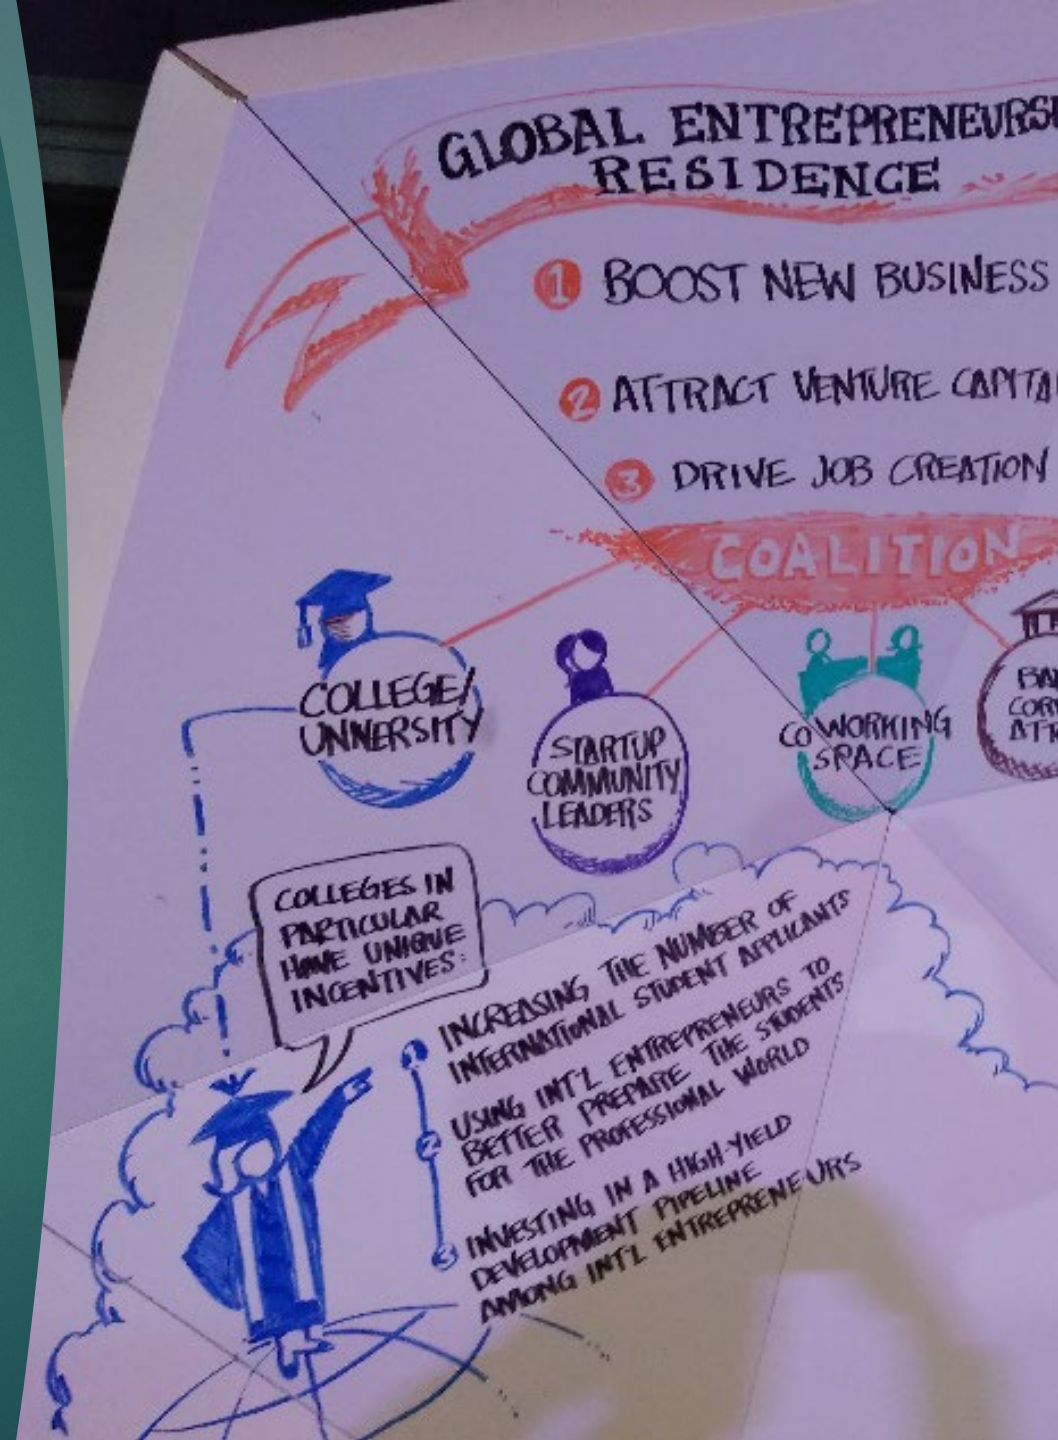 GLOBAL ENTREPRENEURSH
RESIDENCE
1 BOOST NEW BUSINESS
2 ATTRACT VENTURE CAPITA
3 DRIVE JOB CREATION
COALITION
COLLEGE/
UNIVERSITY
STARTUP
COMMUNITY
LEADERS
CO WORKING
SPACE
BA
COR
ATT
COLLEGES IN
PARTICULAR
HAVE UNIQUE
INCENTIVES:
1 INCREASING THE NUMBER OF
INTERNATIONAL STUDENT APPLICANTS
2 USING INT'L ENTREPRENEURS TO
BETTER PREPARE THE STUDENTS
FOR THE PROFESSIONAL WORLD
3 INVESTING IN A HIGH-YIELD
DEVELOPMENT PIPELINE
AMONG INT'L ENTREPRENEURS